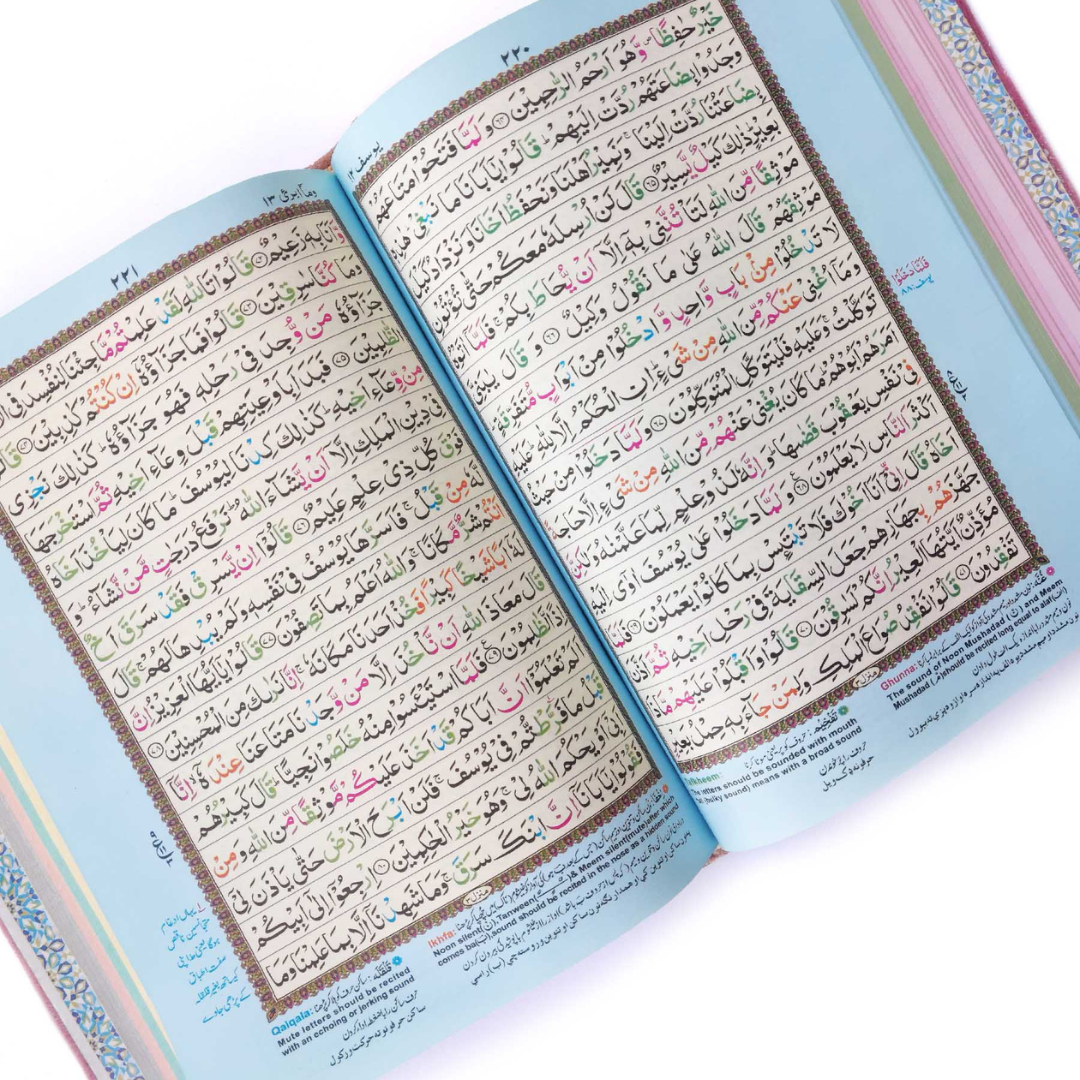 ۲۲۰
یوسف ۱۲
خَيْرٌ حٰفِظًا وَّهُوَ اَرْحَمُ الرّٰحِمِيْنَ ۶۴ وَلَمَّا فَتَحُوْا مَتَاعَهُمْ
وَجَدُوْا بِضَاعَتَهُمْ رُدَّتْ اِلَيْهِمْ قَالُوْا يٰۤاَبَانَا مَا نَبْغِيْ هٰذِهٖ
بِضَاعَتُنَا رُدَّتْ اِلَيْنَا وَنَمِيْرُ اَهْلَنَا وَنَحْفَظُ اَخَانَا وَنَزْدَادُ كَيْلَ
بَعِيْرٍ ذٰلِكَ كَيْلٌ يَّسِيْرٌ ۶۵ قَالَ لَنْ اُرْسِلَهٗ مَعَكُمْ حَتّٰى تُؤْتُوْنِ
مَوْثِقًا مِّنَ اللّٰهِ لَتَاْتُنَّنِيْ بِهٖۤ اِلَّاۤ اَنْ يُّحَاطَ بِكُمْ فَلَمَّاۤ اٰتَوْهُ
مَوْثِقَهُمْ قَالَ اللّٰهُ عَلٰى مَا نَقُوْلُ وَكِيْلٌ ۶۶ وَقَالَ يٰبَنِيَّ
لَا تَدْخُلُوْا مِنْۢ بَابٍ وَّاحِدٍ وَّادْخُلُوْا مِنْ اَبْوَابٍ مُّتَفَرِّقَةٍ
وَمَاۤ اُغْنِيْ عَنْكُمْ مِّنَ اللّٰهِ مِنْ شَيْءٍ اِنِ الْحُكْمُ اِلَّا لِلّٰهِ عَلَيْهِ
تَوَكَّلْتُ وَعَلَيْهِ فَلْيَتَوَكَّلِ الْمُتَوَكِّلُوْنَ ۶۷ وَلَمَّا دَخَلُوْا مِنْ حَيْثُ
اَمَرَهُمْ اَبُوْهُمْ مَا كَانَ يُغْنِيْ عَنْهُمْ مِّنَ اللّٰهِ مِنْ شَيْءٍ اِلَّا حَاجَةً
فِيْ نَفْسِ يَعْقُوْبَ قَضٰىهَا وَاِنَّهٗ لَذُوْ عِلْمٍ لِّمَا عَلَّمْنٰهُ وَلٰكِنَّ
اَكْثَرَ النَّاسِ لَا يَعْلَمُوْنَ ۶۸ وَلَمَّا دَخَلُوْا عَلٰى يُوْسُفَ اٰوٰۤى اِلَيْهِ
اَخَاهُ قَالَ اِنِّيْۤ اَنَا اَخُوْكَ فَلَا تَبْتَئِسْ بِمَا كَانُوْا يَعْمَلُوْنَ ۶۹ فَلَمَّا
جَهَّزَهُمْ بِجَهَازِهِمْ جَعَلَ السِّقَايَةَ فِيْ رَحْلِ اَخِيْهِ ثُمَّ اَذَّنَ
مُؤَذِّنٌ اَيَّتُهَا الْعِيْرُ اِنَّكُمْ لَسٰرِقُوْنَ ۷۰ قَالُوْا وَاَقْبَلُوْا عَلَيْهِمْ مَّاذَا
تَفْقِدُوْنَ ۷۱ قَالُوْا نَفْقِدُ صُوَاعَ الْمَلِكِ وَلِمَنْ جَآءَ بِهٖ حِمْلُ بَعِيْرٍ
Ghunna:
The sound of Noon Mushadad (نّ) and Meem
Mushadad (مّ) should be recited long equal to alaf (الف)
The letters should be sounded with mouth
(bulky sound) means with a broad sound
۲۲۱
وماابرئ ۱۳
وَّاَنَا بِهٖ زَعِيْمٌ ۷۲ قَالُوْا تَاللّٰهِ لَقَدْ عَلِمْتُمْ مَّا جِئْنَا لِنُفْسِدَ فِي
وَمَا كُنَّا سٰرِقِيْنَ ۷۳ قَالُوْا فَمَا جَزَآؤُهٗۤ اِنْ كُنْتُمْ كٰذِبِيْنَ ۷۴
جَزَآؤُهٗ مَنْ وُّجِدَ فِيْ رَحْلِهٖ فَهُوَ جَزَآؤُهٗ كَذٰلِكَ نَجْزِي
الظّٰلِمِيْنَ ۷۵ فَبَدَاَ بِاَوْعِيَتِهِمْ قَبْلَ وِعَآءِ اَخِيْهِ ثُمَّ اسْتَخْرَجَهَا
مِنْ وِّعَآءِ اَخِيْهِ كَذٰلِكَ كِدْنَا لِيُوْسُفَ مَا كَانَ لِيَاْخُذَ اَخَاهُ
فِيْ دِيْنِ الْمَلِكِ اِلَّاۤ اَنْ يَّشَآءَ اللّٰهُ نَرْفَعُ دَرَجٰتٍ مَّنْ نَّشَآءُ
وَفَوْقَ كُلِّ ذِيْ عِلْمٍ عَلِيْمٌ ۷۶ قَالُوْۤا اِنْ يَّسْرِقْ فَقَدْ سَرَقَ اَخٌ
لَّهٗ مِنْ قَبْلُ فَاَسَرَّهَا يُوْسُفُ فِيْ نَفْسِهٖ وَلَمْ يُبْدِهَا لَهُمْ قَالَ
اَنْتُمْ شَرٌّ مَّكَانًا وَاللّٰهُ اَعْلَمُ بِمَا تَصِفُوْنَ ۷۷ قَالُوْا يٰۤاَيُّهَا الْعَزِيْزُ اِنَّ
لَهٗۤ اَبًا شَيْخًا كَبِيْرًا فَخُذْ اَحَدَنَا مَكَانَهٗ اِنَّا نَرٰىكَ مِنَ الْمُحْسِنِيْنَ ۷۸
قَالَ مَعَاذَ اللّٰهِ اَنْ نَّاْخُذَ اِلَّا مَنْ وَّجَدْنَا مَتَاعَنَا عِنْدَهٗۤ اِنَّاۤ
اِذًا لَّظٰلِمُوْنَ ۷۹ فَلَمَّا اسْتَيْئَسُوْا مِنْهُ خَلَصُوْا نَجِيًّا قَالَ كَبِيْرُهُمْ
اَلَمْ تَعْلَمُوْۤا اَنَّ اَبَاكُمْ قَدْ اَخَذَ عَلَيْكُمْ مَّوْثِقًا مِّنَ اللّٰهِ وَمِنْ
قَبْلُ مَا فَرَّطْتُّمْ فِيْ يُوْسُفَ فَلَنْ اَبْرَحَ الْاَرْضَ حَتّٰى يَاْذَنَ لِيْۤ
اَبِيْۤ اَوْ يَحْكُمَ اللّٰهُ لِيْ وَهُوَ خَيْرُ الْحٰكِمِيْنَ ۸۰ اِرْجِعُوْۤا اِلٰۤى اَبِيْكُمْ
فَقُوْلُوْا يٰۤاَبَانَاۤ اِنَّ ابْنَكَ سَرَقَ وَمَا شَهِدْنَاۤ اِلَّا بِمَا عَلِمْنَا وَمَا
Ikhfa:
Noon silent(نْ),Tanween & Meem silent(mute)after which
comes ba(ب),sound should be recited in the nose as a hidden sound
Qalqala:
Mute letters should be recited
with an echoing or jerking sound